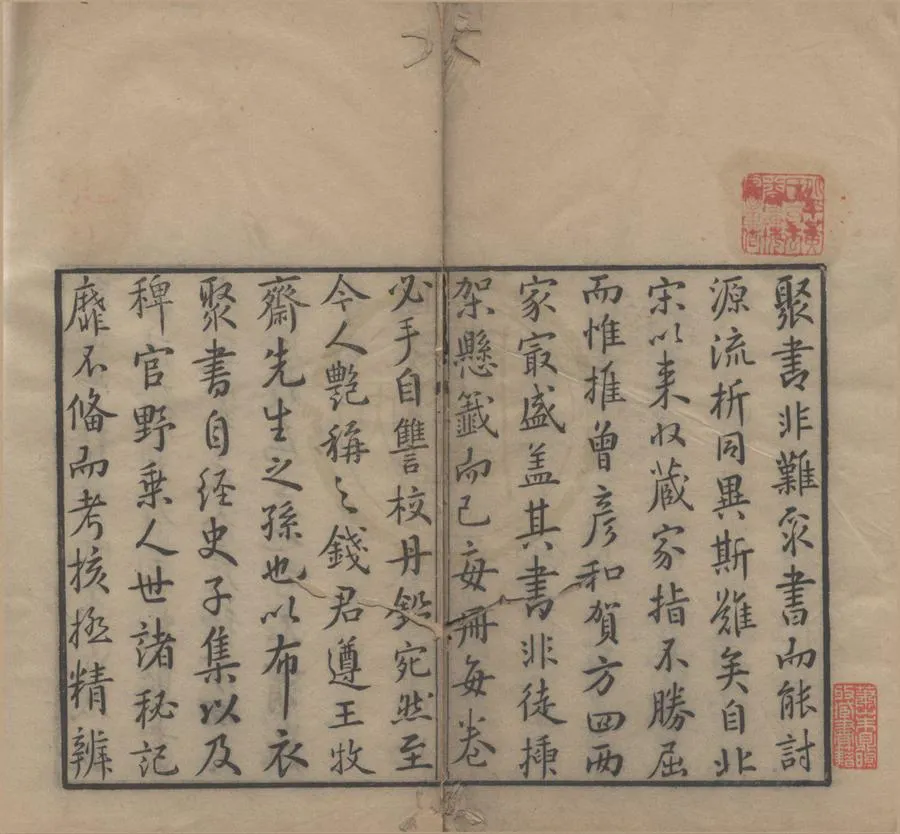 聚書非難聚書而能討
源流析同異斯難矣自北
宋以来收蔵家指不勝屈
而惟推曾彦和賀方回兩
家冣盛盖其書非徒揷
架懸籤而已每冊每卷
必手自讐校丹鉛宛然至
今人艷稱之錢君遵王牧
齋先生之孫也以布衣
聚書自经史子集以及
稗官野乗人世諸秘記
靡不俻而考核極精辨